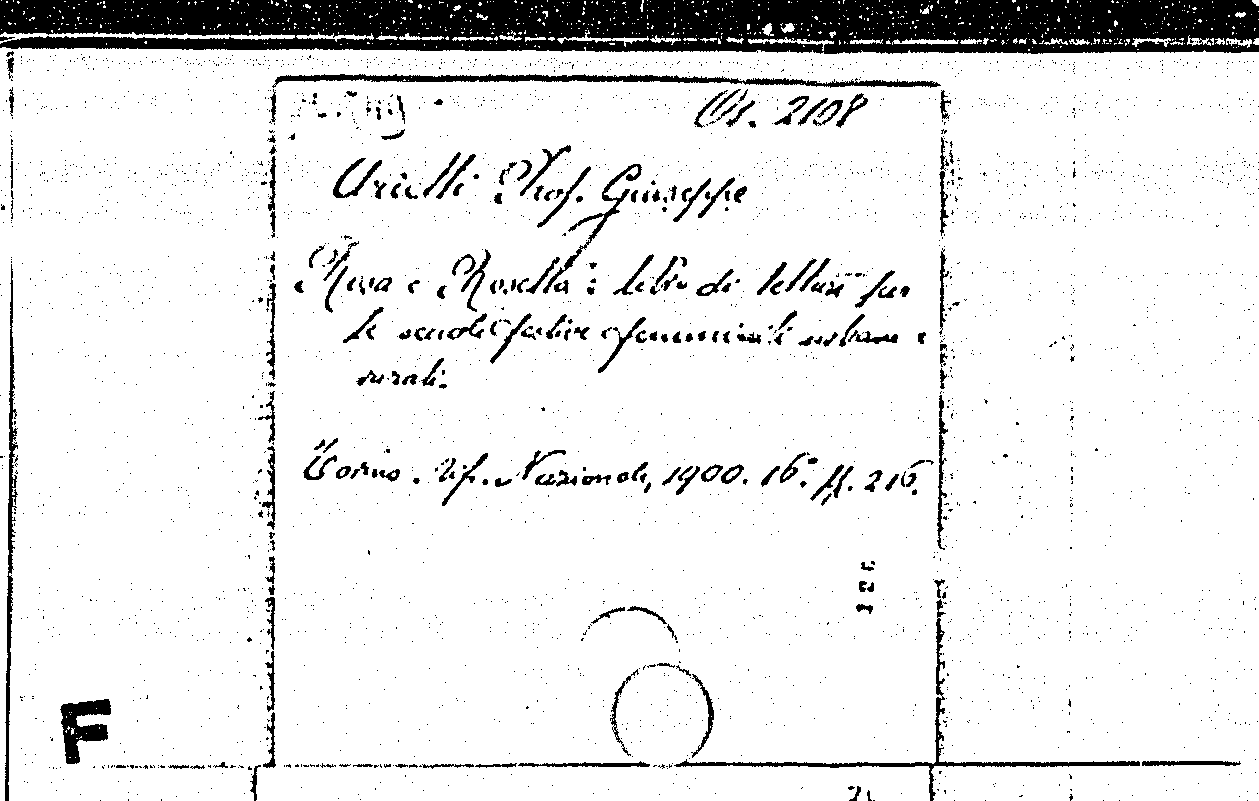 Or. 2108
Prof. Giuseppe
Rosa e Rosetta: libro di lettura per
le scuole festive femminili urbane e
rurali.
Torino. Tip. Nazionale, 1900. 16.° pp. 216.
F